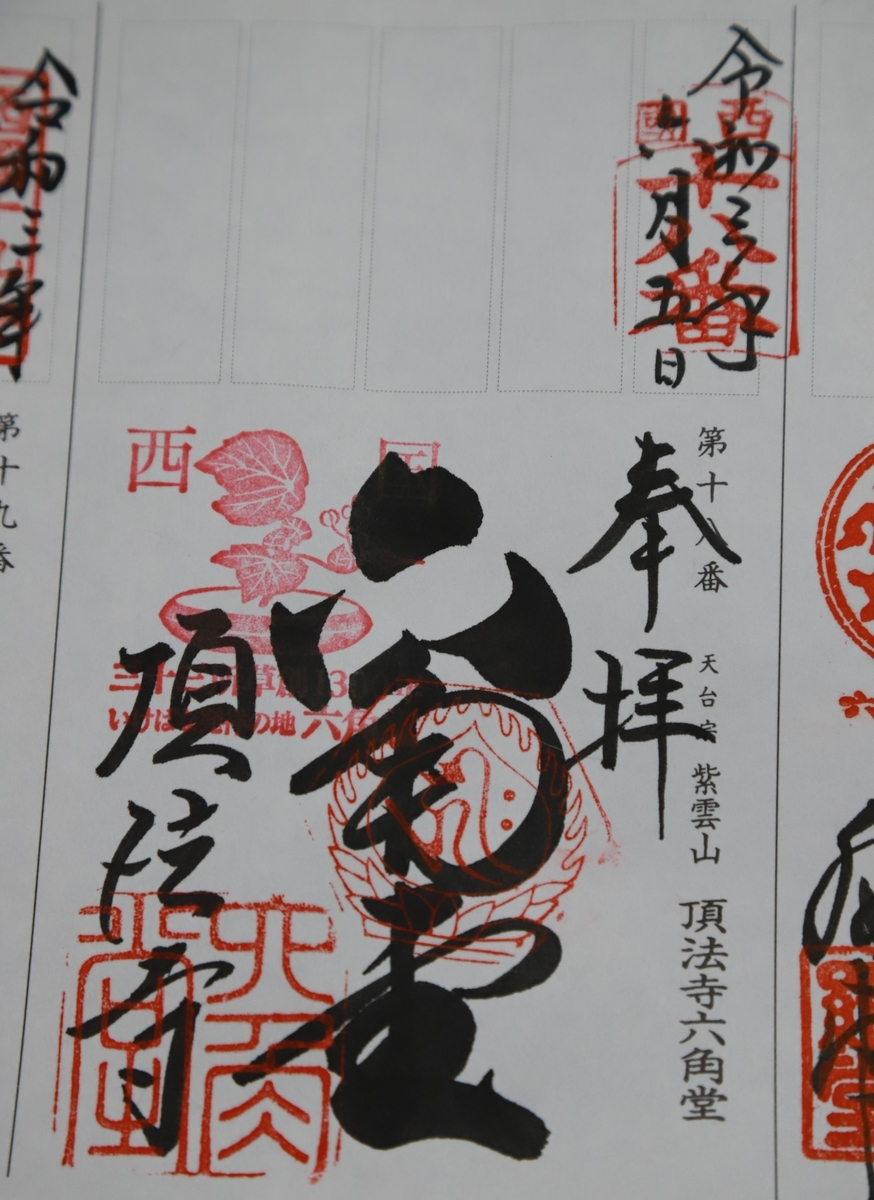 令和三年
六月五日
西國
十八番
第十八番
天台宗
紫雲山
頂法寺六角堂
奉拝
六角堂
頂法寺
西国
三十三所草創1300年
いけばな発祥の地 六角堂
六角堂
令和三年
第十九番